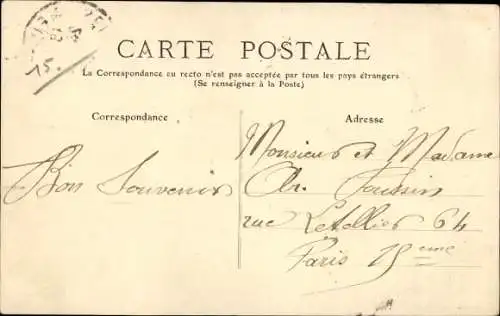 15.
CARTE POSTALE
La Correspondance au recto n'est pas acceptée par tous les pays étrangers
(Se renseigner à la Poste)
Correspondance
Bon Souvenir
Adresse
Monsieur et Madame
Ch. Poussin
rue Letellier 64
Paris 15eme